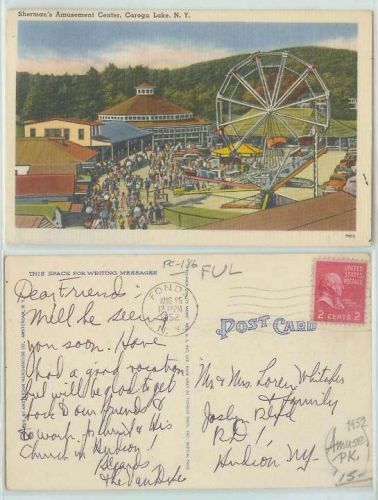 Sherman's Amusement Center, Caroga Lake, N. Y.
THIS SPACE FOR WRITING MESSAGES
PC-186
FUL
FONDA
AUG 15
1952
N.Y.
2 CENTS 2
POST CARD
Dear Friends:
Will be seeing
you soon. Have
had a good vacation
but will be glad to get
back to our friends &
to work for Christ & His
Church in Hudson!
Regards
The Van Dykes
Mr & Mrs. Loren Whitcher
& Family
Joslyn Blvd
RD 1
Hudson NY
1952
Amuse.
PK.
15-